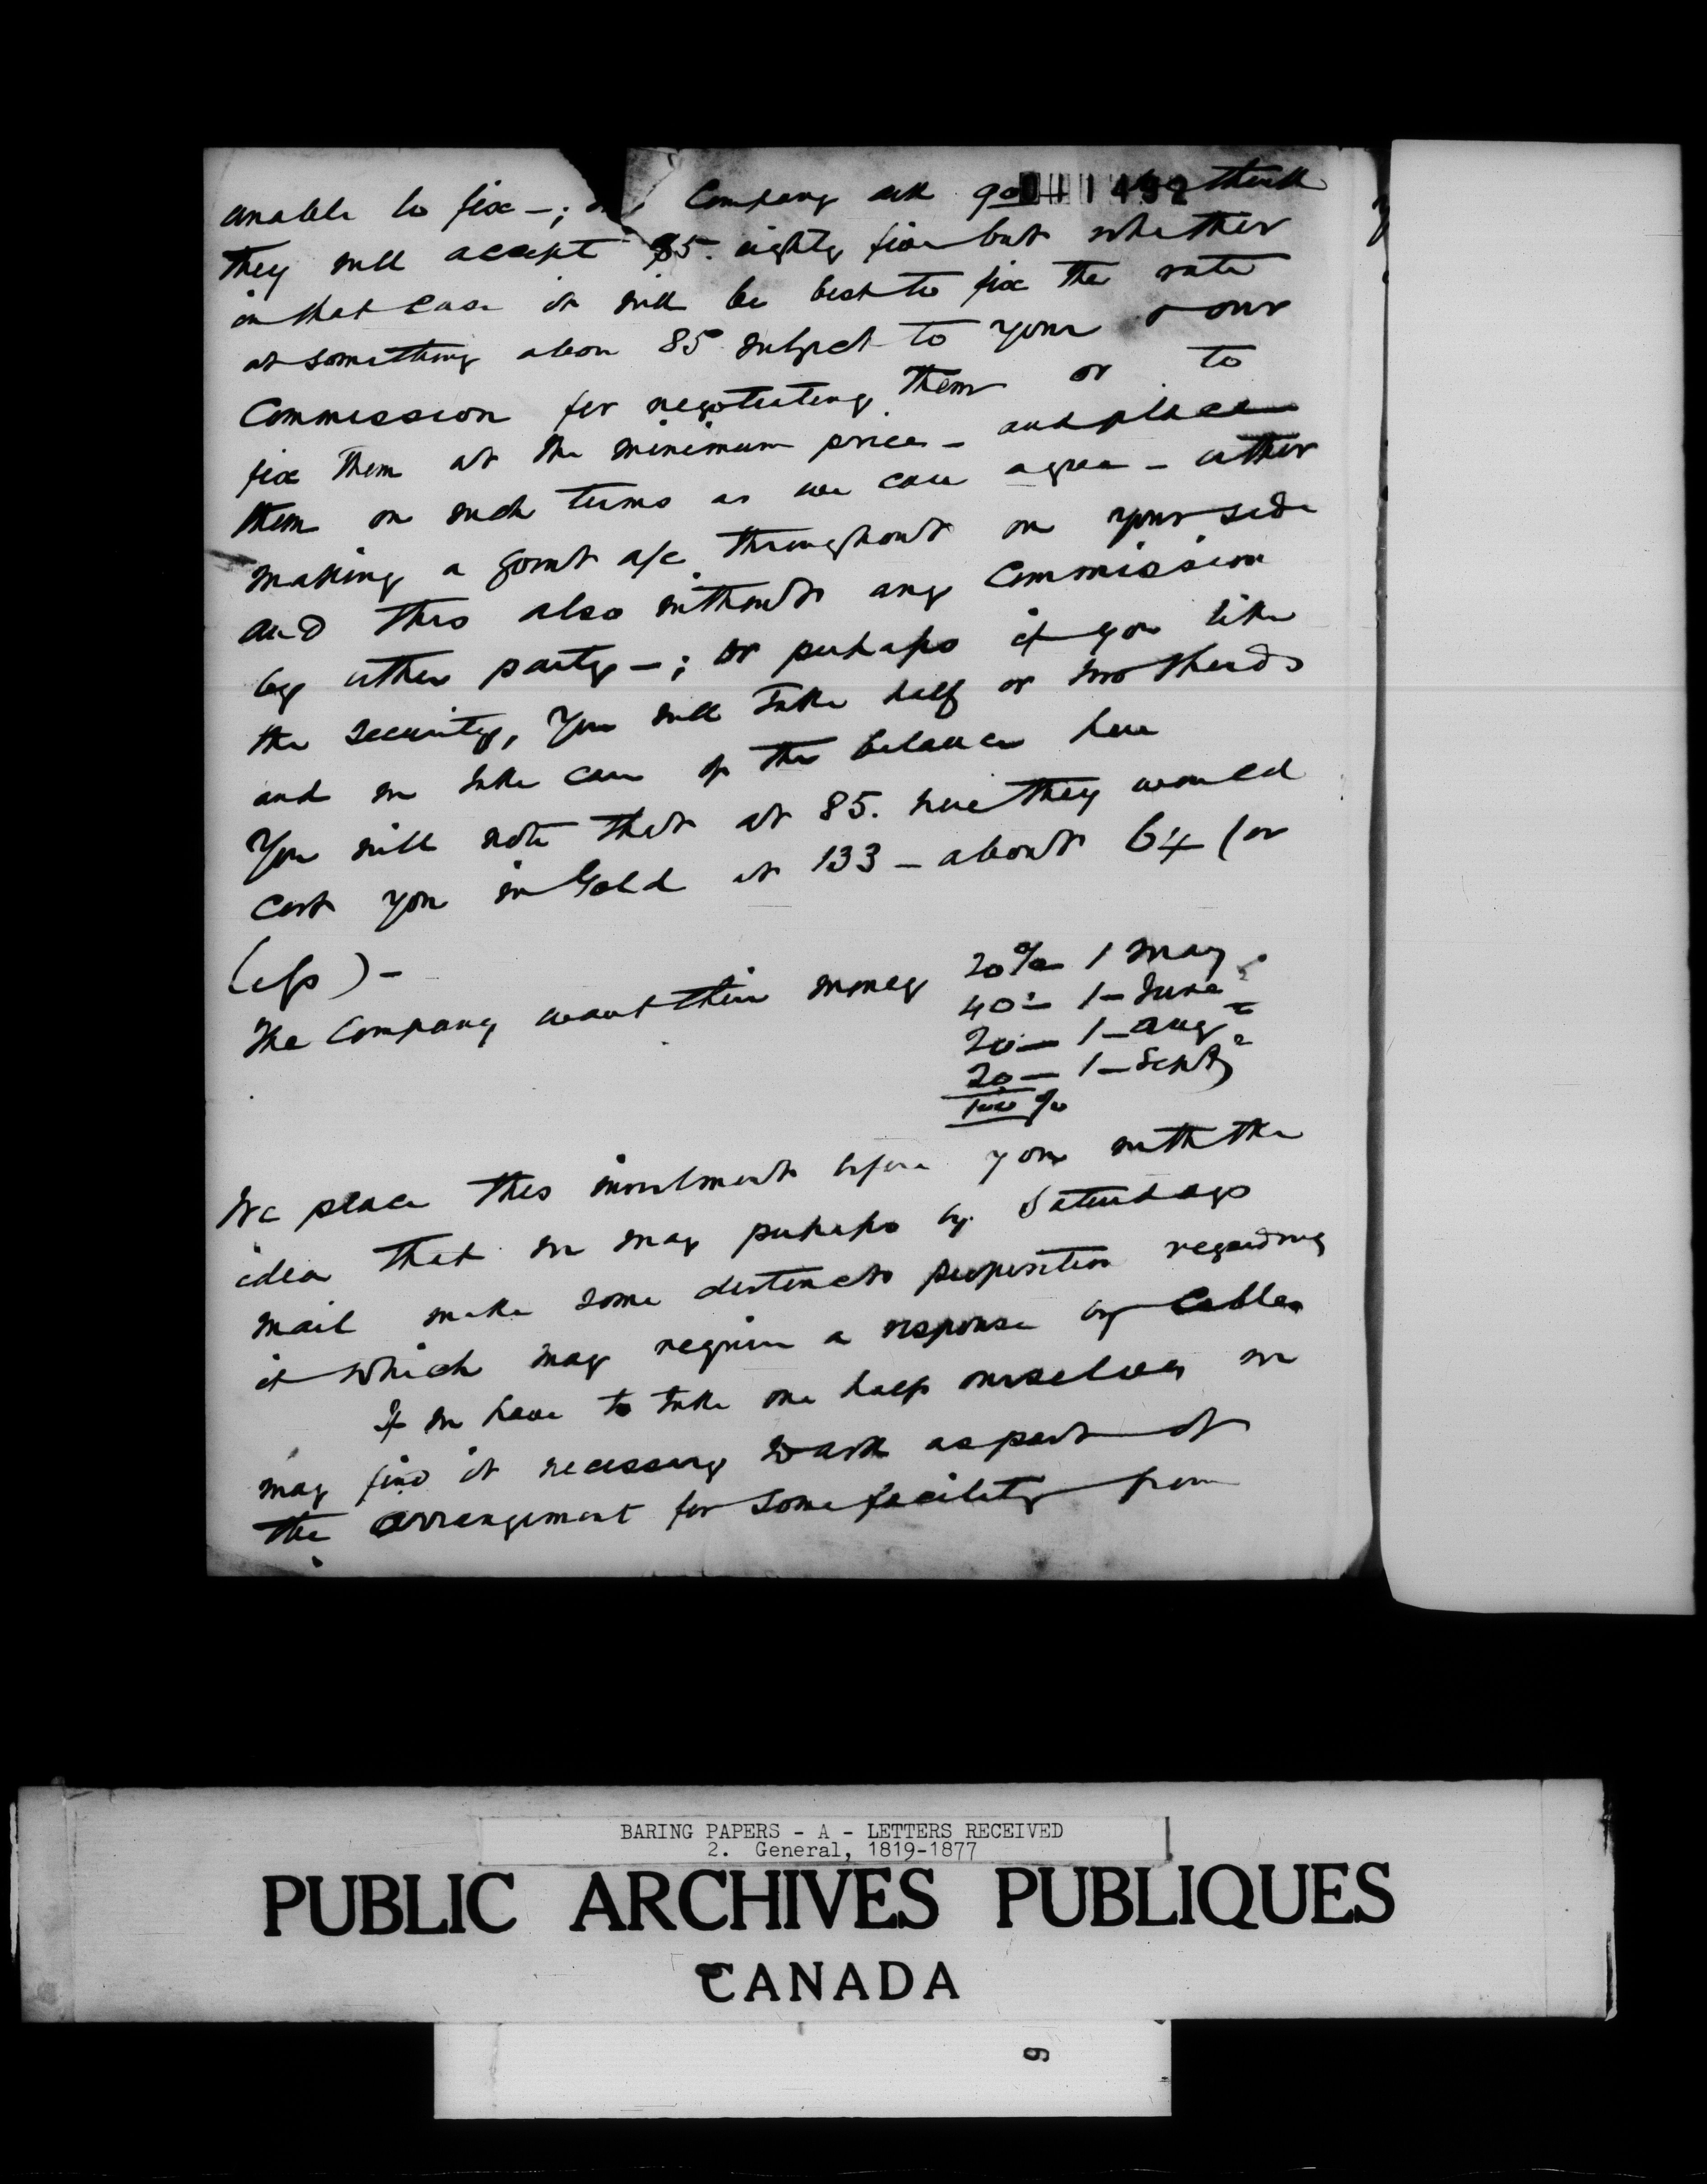 unable to fix — ; Company ask 90 think
01 1492
they will accept 85. eighty five but whether
in that case it will be best to fix the rate
at something above 85 subject to your & our
Commission for negotiating them or to
fix them at the minimum price — and place
them on such terms as we can agree — either
making a joint a/c throughout on your side
and this also without any Commission
by either party — ; or perhaps if you like
the security, you will take half or two thirds
and we take care of the balance here
You will note that at 85. here they would
cost you in Gold at 133 — about 64 (or
(less) —
The Company want their money 20% 1 May
40 — 1 — June
20 — 1 — Aug
20 — 1 — Sept
100 %
We place this investment before you with the
idea that we may perhaps by Saturdays
mail make some distinct proposition regarding
it which may require a response by Cable
If we have to take one half ourselves we
may find it necessary to ask as part of
the arrangement for some facility from
BARING PAPERS - A - LETTERS RECEIVED
2. General, 1819-1877
PUBLIC ARCHIVES PUBLIQUES
CANADA
9